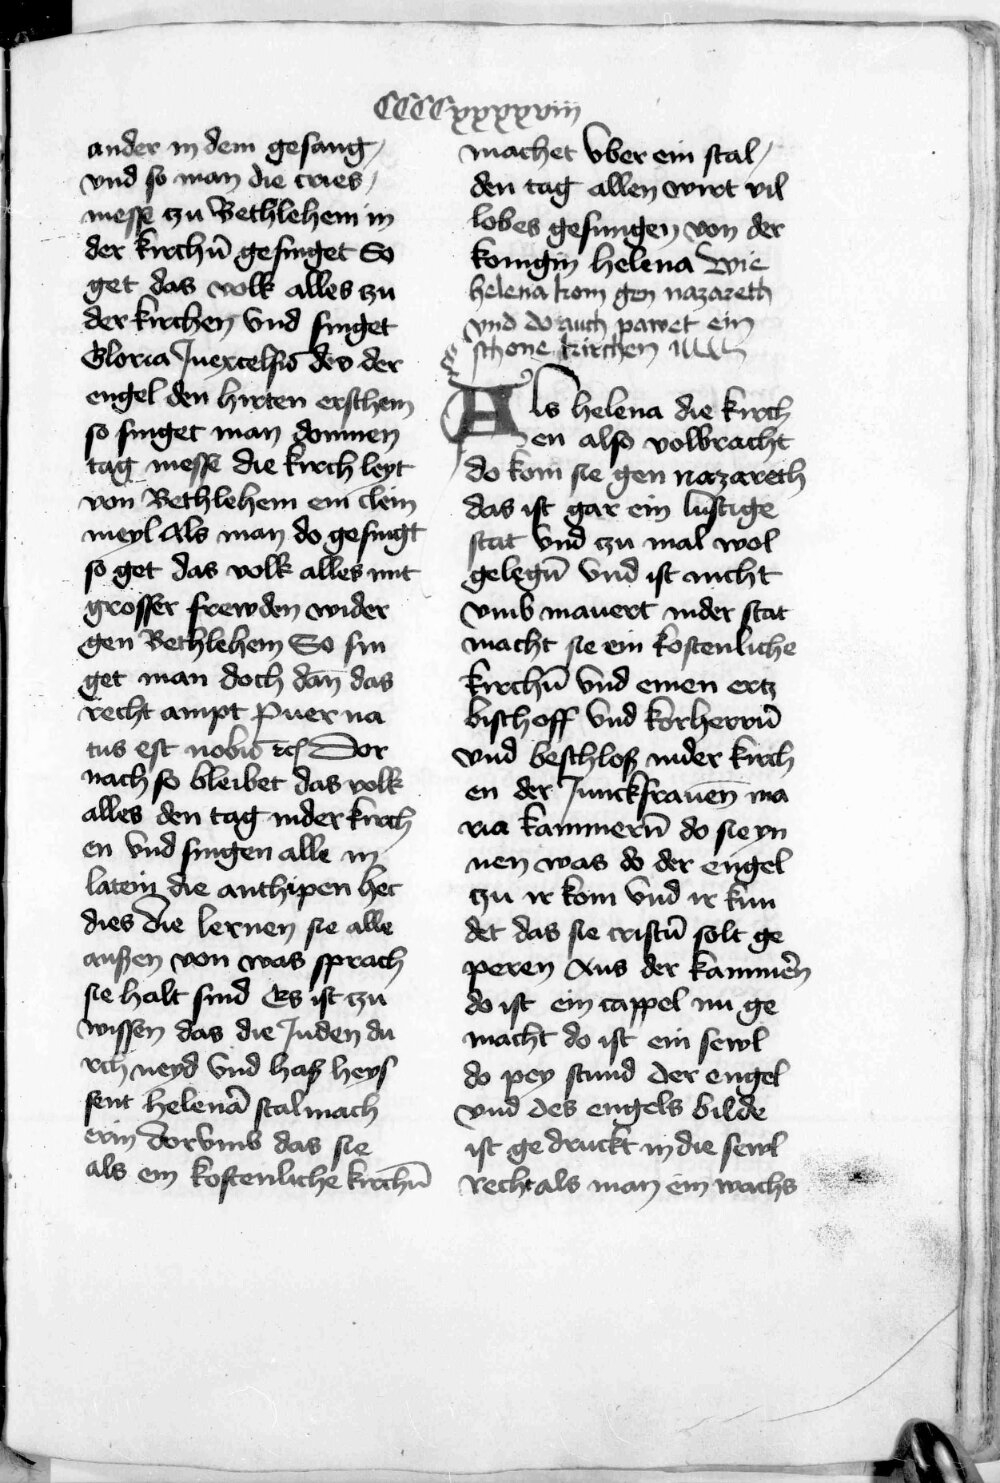 CCCCxxxxxviii
ander in dem gesang /
vnd so man die cries /
messe tzu Bethlehem in
der kirchn̄ gesinget So
get das volk alles tzu
der kirchen vnd singet
Gloria In excelsis deo der
engel den hirten erschein
so singet man donnen
tag messe die kirch leyt
von Bethlehem ein clein
meyl Als man do gesingt
so get das volk alles mit
grosser frewden wider
gen Bethlehem So sin
get man doch dan̄ das
recht ampt Puer na
tus est nobis etc̄ Dor
nach so bleibet das volk
alles den tag inder kirch
en vnd singen alle in
latein die anthipen hec
dies die lernen sie alle
außen von was sprach
sie halt sind Es ist tzu
wissen das die Juden du
rch neyd vnd haß heys
sent helenā stalmach
erin dorvmb das sie
als ein kostenliche kirchn̄
machet vber ein stal /
den tag allen wirt vil
lobes gesungen von der
konigin helena Wie
helena kom gen nazareth
vnd do auch pawet ein
schone kirchen
Als helena die kirch
en also volbracht
do kom sie gen nazareth
das ist gar ein lustige
stat vnd tzu mal wol
gelegn̄ vnd ist nicht
vmb mauert inder stat
macht sie ein kostenliche
kirchn̄ vnd einen ertz
bischoff vnd korherrn̄
vnd beschloß inder kirch
en der Junckfrauen̄ ma
ria kammern̄ do sie yn
nen was do der engel
tzu ir kom vnd ir kun
det das sie cristū solt ge
peren Aus der kammern̄
do ist ein cappel nu ge
macht do ist ein sewl
do pey stund der engel
vnd des engels bilde
ist gedruckt in die sewl
recht als man ein wachs